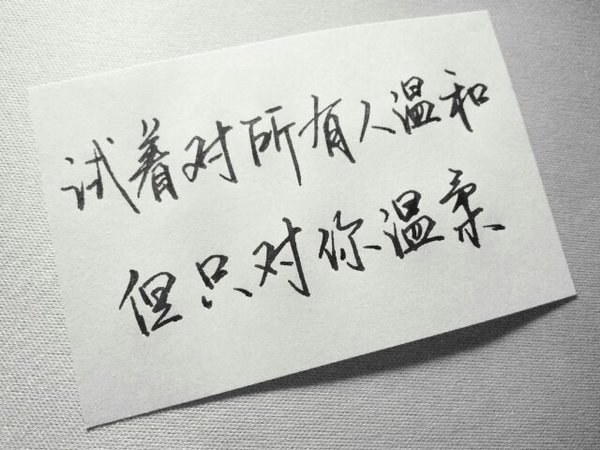 试着对所有人温和
但只对你温柔